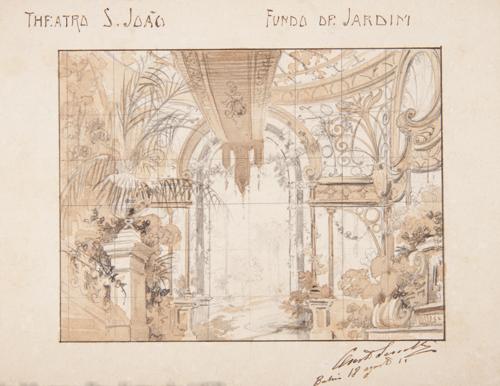 THEATRO S. JOÃO
FUNDO DE JARDIM
Bahia 18